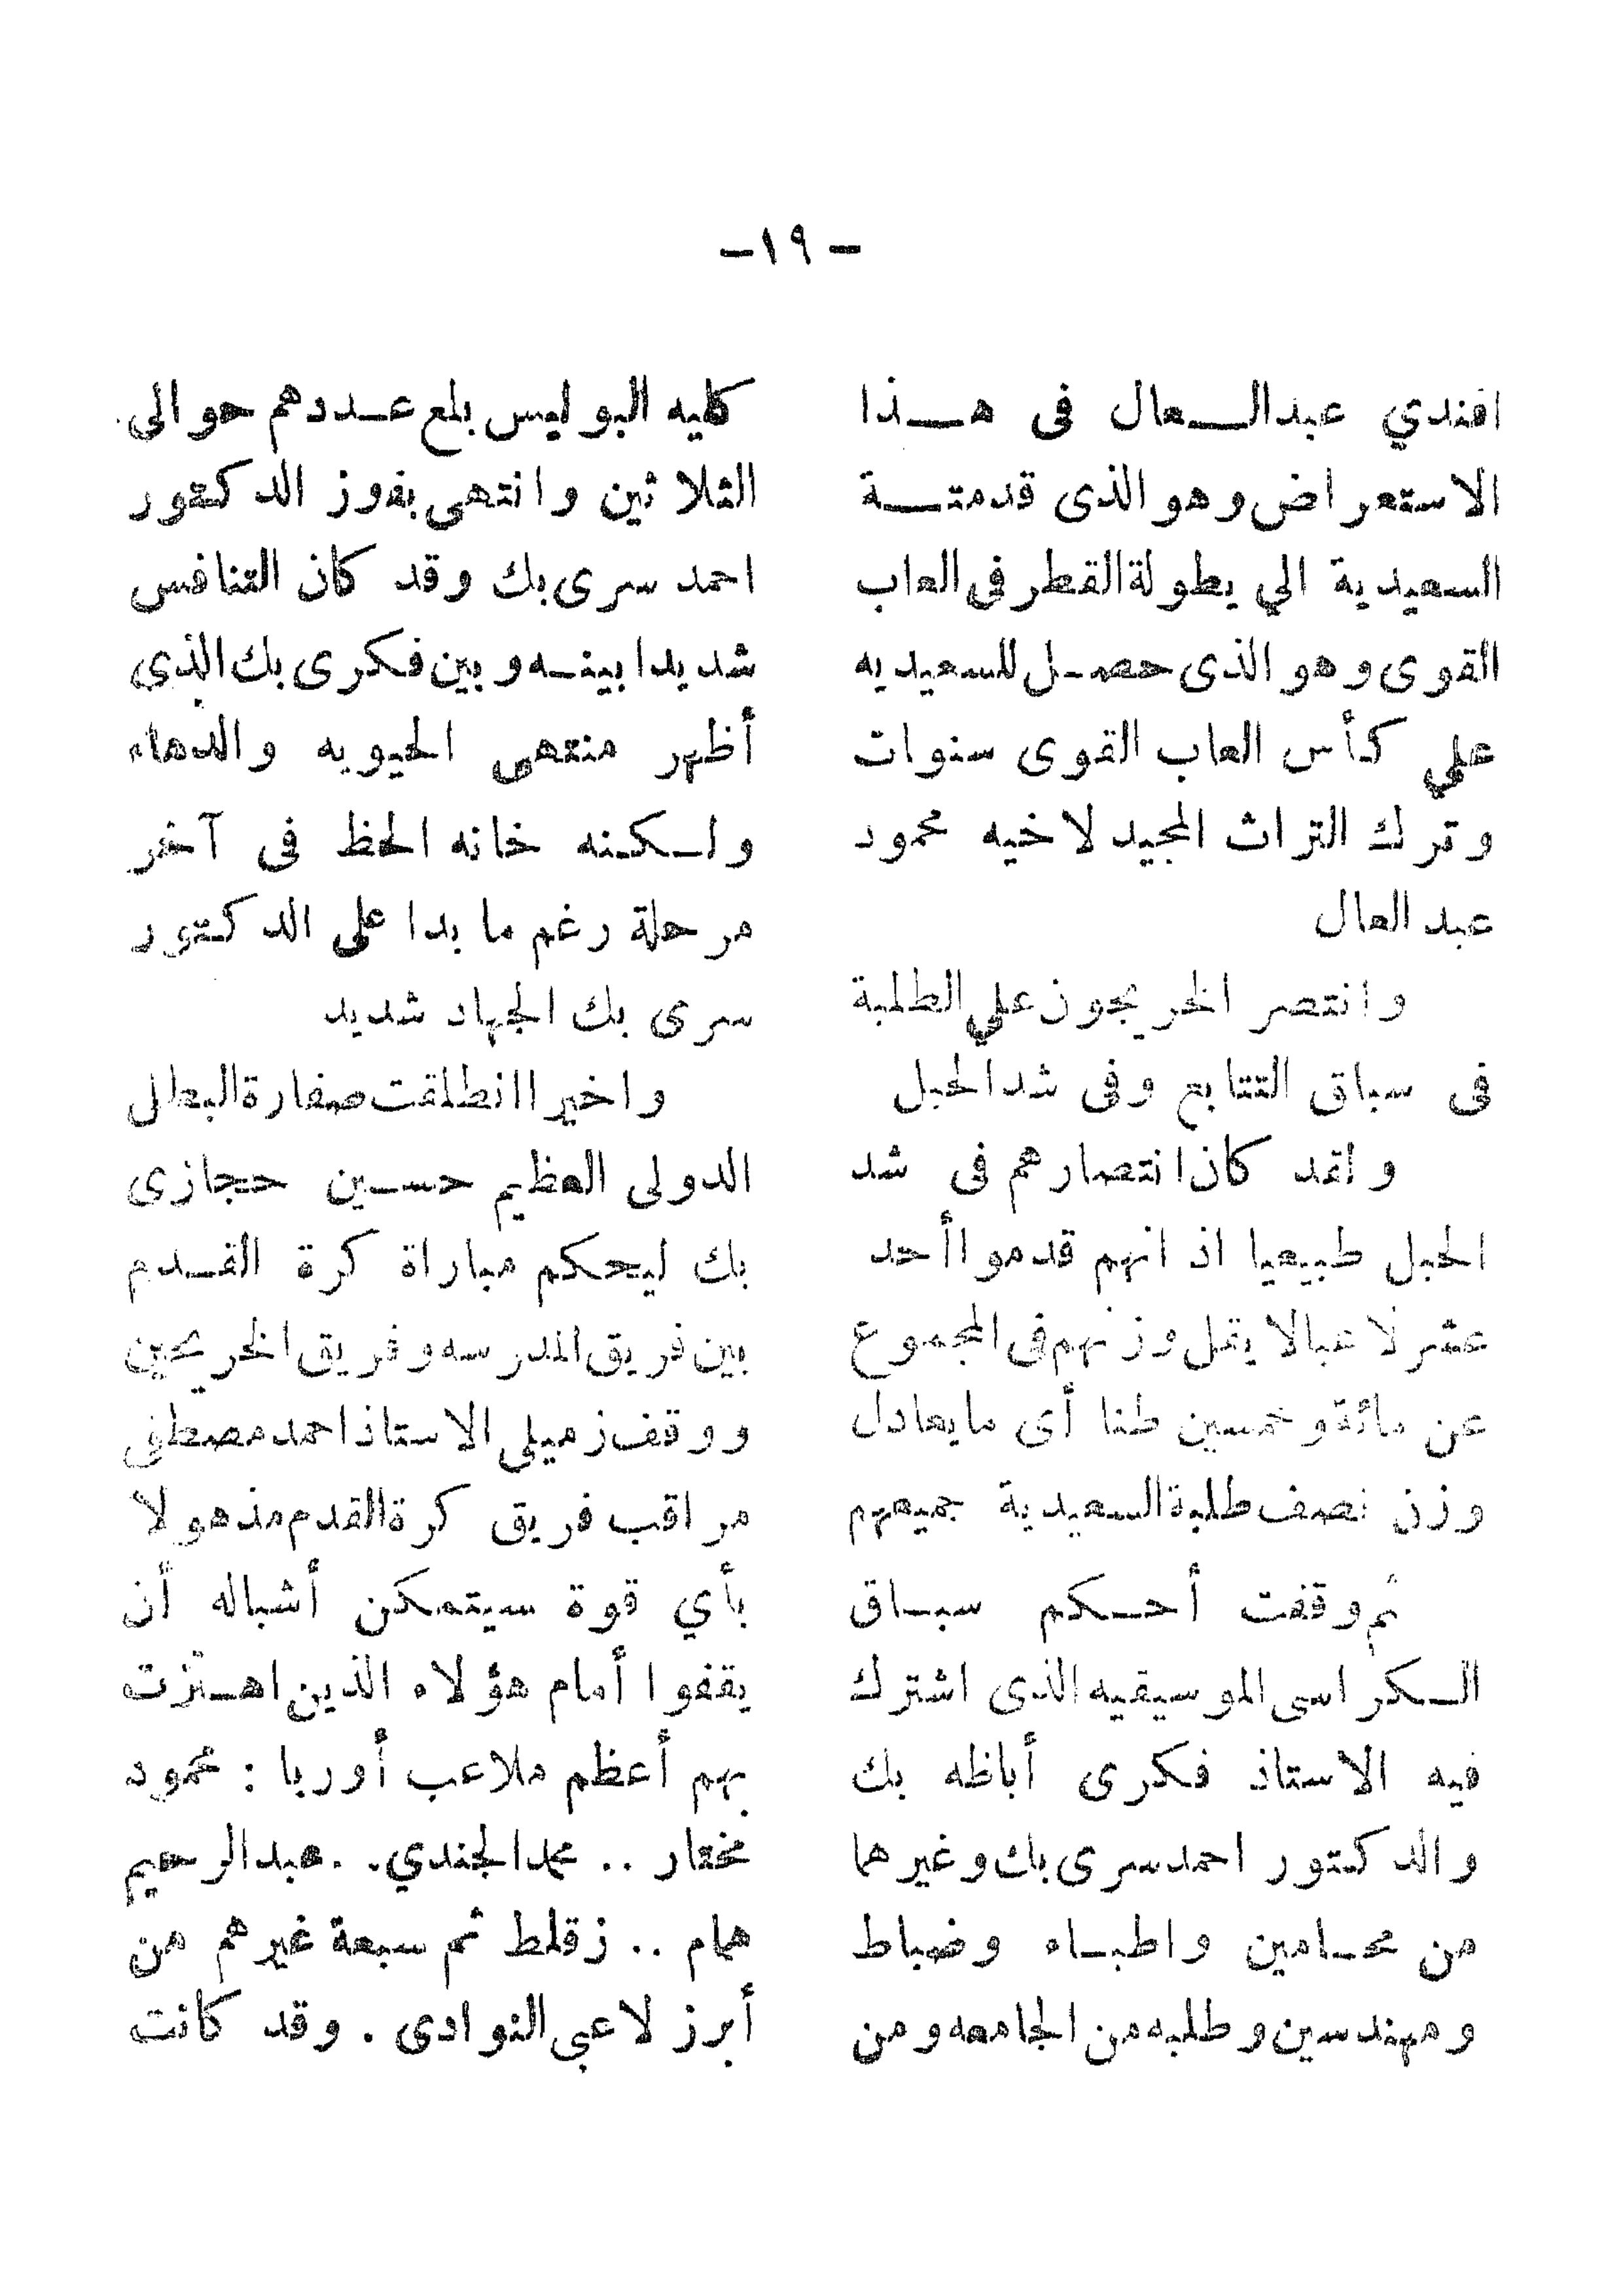 - ١٩ -
افندي عبد العال فى هذا
الاستعراض وهو الذى قدمتة
السعيدية الي بطولة القطر فى العاب
القوى وهو الذى حصل للسعيديه
علي كأس العاب القوى سنوات
وترك التراث المجيد لاخيه محمود
عبد العال
وانتصر الخريجون علي الطلبة
فى سباق التتابع وفى شد الحبل
ولقد كان انتصارهم فى شد
الحبل طبيعيا اذ انهم قدموا أحد
عشر لاعبا لا يقل وزنهم فى المجموع
عن مائة وخمسين طنا أى ما يعادل
وزن نصف طلبة السعيدية جميعهم
ثم وقفت أحكم سباق
الكراسى الموسيقيه الذى اشترك
فيه الاستاذ فكرى أباظه بك
والدكتور احمد سرى بك وغيرهما
من محامين واطباء وضباط
ومهندسين وطلبه من الجامعه ومن
كليه البوليس بلع عددهم حوالى
الثلاثين وانتهى بفوز الدكتور
احمد سرى بك وقد كان التنافس
شديدا بينه وبين فكرى بك الذى
أظهر منتهى الحيويه والدهاء
ولكنه خانه الحظ فى آخر
مرحلة رغم ما بدا على الدكتور
سرى بك الجهاد شديد
واخيرا انطلقت صفارة البطال
الدولى العظيم حسين حجازى
بك ليحكم مباراة كرة القدم
بين فريق المدرسه وفريق الخريجين
ووقف زميلى الاستاذ احمد مصطفى
مراقب فريق كرة القدم مذهولا
بأي قوة سيتمكن أشباله أن
يقفوا أمام هؤلاء الذين اهتزت
بهم أعظم ملاعب أوربا : محمود
مختار .. محمد الجندي .. عبد الرحيم
همام .. زقلط ثم سبعة غيرهم من
أبرز لاعبى النوادى . وقد كانت